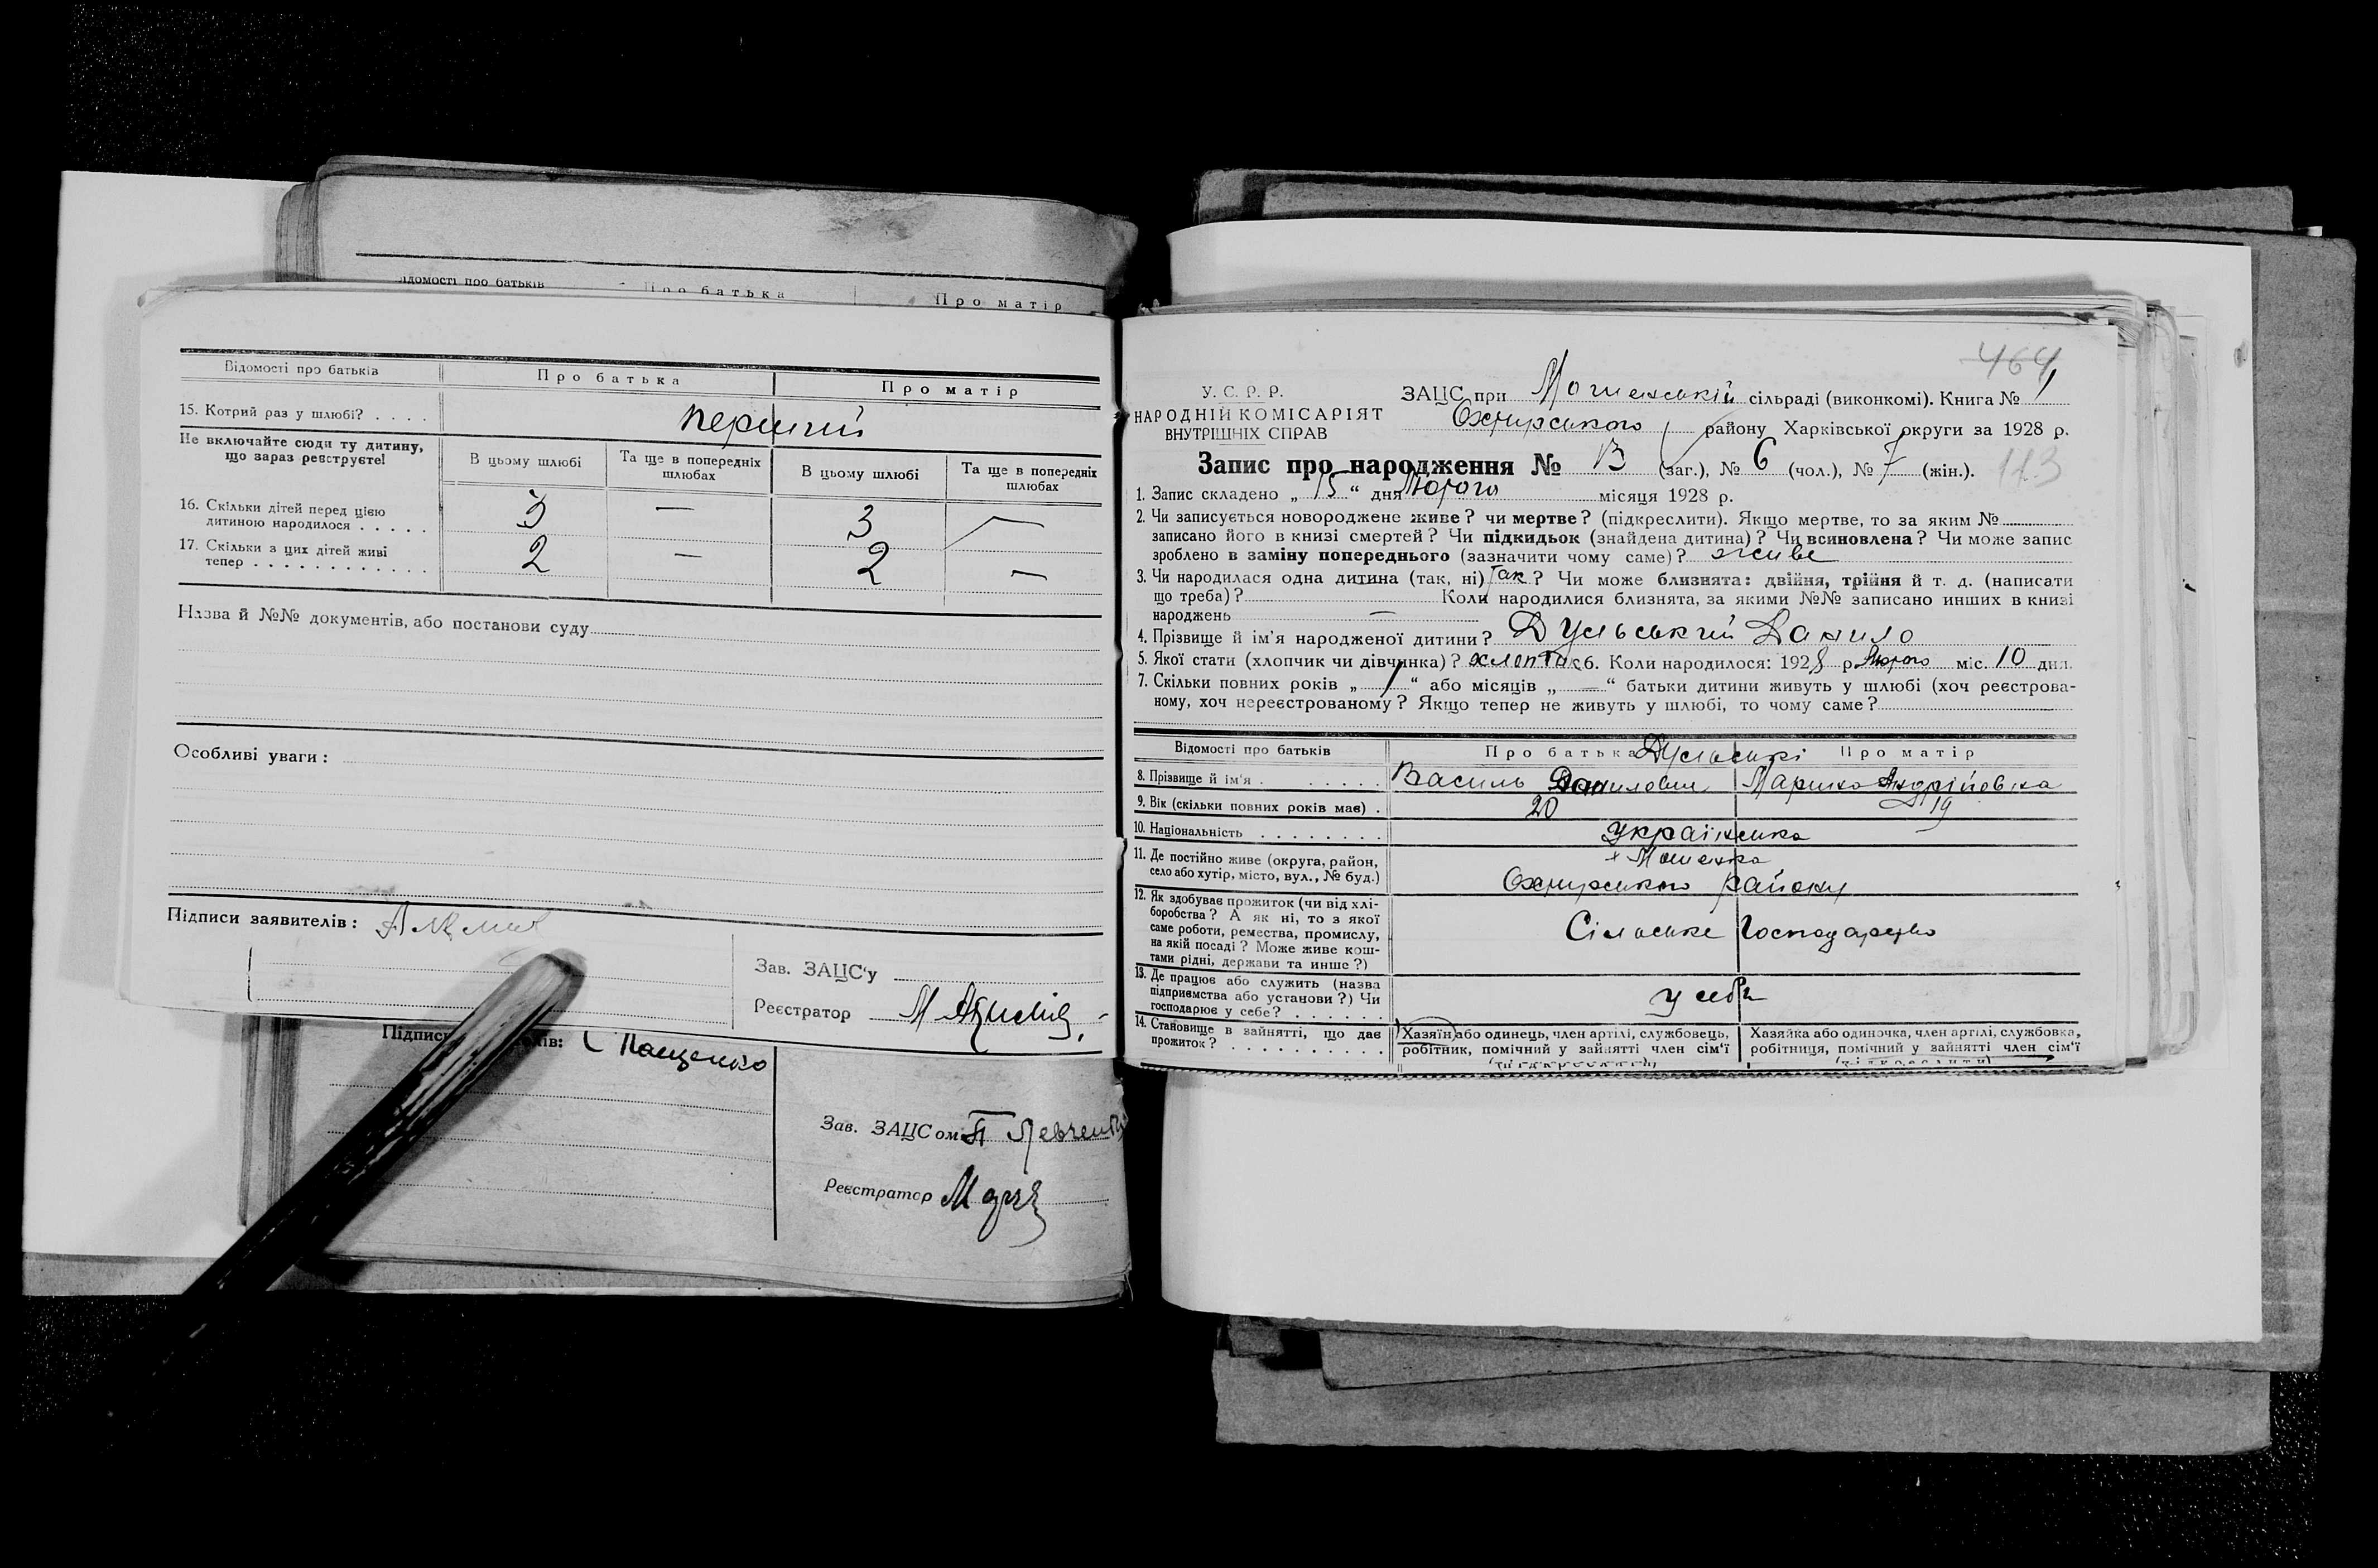 Відомості про батьків Про батька Про матір
Відомості про батьків Про батька Про матір
15. Котрий раз у шлюбі? . . . . перший
Не включайте сюди ту дитину, що зараз реєструєте!
В цьому шлюбі Та ще в попередніх шлюбах В цьому шлюбі Та ще в попередніх шлюбах
16. Скільки дітей перед цією
дитиною народилося . . . . . 3 — 3 —
17. Скільки з цих дітей живі
тепер . . . . . . . . . . . . 2 — 2 —
Назва й №№ документів, або постанови суду
Особливі уваги:
Підписи заявителів:
Зав. ЗАЦС'у
Реєстратор М
С Пащенко
Зав. ЗАЦСом П Левченко
Реєстратор
464
У. С. Р. Р.
НАРОДНІЙ КОМІСАРІЯТ
ВНУТРІШНІХ СПРАВ
ЗАЦС при Мошенській сільраді (виконкомі). Книга № 1
Охтирського району Харківської округи за 1928 р.
Запис про народження № 13 (заг.), № 6 (чол.), № 7 (жін.). 113
1. Запис складено „ 15 “ дня Лютого місяця 1928 р.
2. Чи записується новороджене живе? чи мертве? (підкреслити). Якщо мертве, то за яким №
записано його в книзі смертей? Чи підкидьок (знайдена дитина)? Чи всиновлена? Чи може запис
зроблено в заміну попереднього (зазначити чому саме)? живе
3. Чи народилася одна дитина (так, ні) так? Чи може близнята: двійня, трійня й т. д. (написати
що треба)? Коли народилися близнята, за якими №№ записано инших в книзі
народжень —
4. Прізвище й ім'я народженої дитини? Дульський Данило
5. Якої стати (хлопчик чи дівчинка)? хлопчик 6. Коли народилося: 1928 р. Лютого міс. 10 дня.
7. Скільки повних років „ 1 “ або місяців „ — “ батьки дитини живуть у шлюбі (хоч реєстрова-
ному, хоч нереєстрованому? Якщо тепер не живуть у шлюбі, то чому саме?
Відомості про батьків Про батька Дульські Про матір
8. Прізвище й ім'я . . . . . . Василь Данилович Марика Андріївна
9. Вік (скільки повних років має) . 20 19
10. Національність . . . . . . . . українська
11. Де постійно живе (округа, район,
село або хутір, місто, вул., № буд.)
х Мошенка
Охтирського району
12. Як здобуває прожиток (чи від хлі-
боробства? А як ні, то з якої
саме роботи, ремества, промислу,
на якій посаді? Може живе кош-
тами рідні, держави та инше?)
Сільське Господарство
13. Де працює або служить (назва
підприємства або установи?) Чи
господарює у себе? . . . . . .
у себе
14. Становище в зайнятті, що дає
прожиток? . . . . . . . . . .
Хазяїн або одинець, член артілі, службовець,
робітник, помічний у зайнятті член сім'ї
(підкреслити)
Хазяйка або одиночка, член артілі, службовка,
робітниця, помічний у зайнятті член сім'ї
(підкреслити)